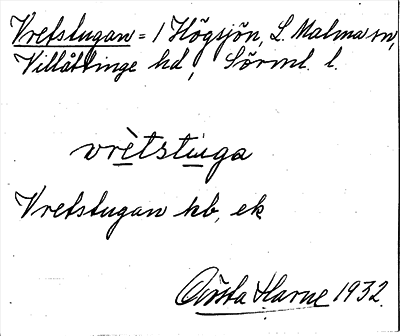 Vretstugan = 1 Högsjön, L. Malma sn,
Villåttinge hd, Sörml. l.
vrètstuga
Vretstugan kb, ek
Gösta Harne 1932.